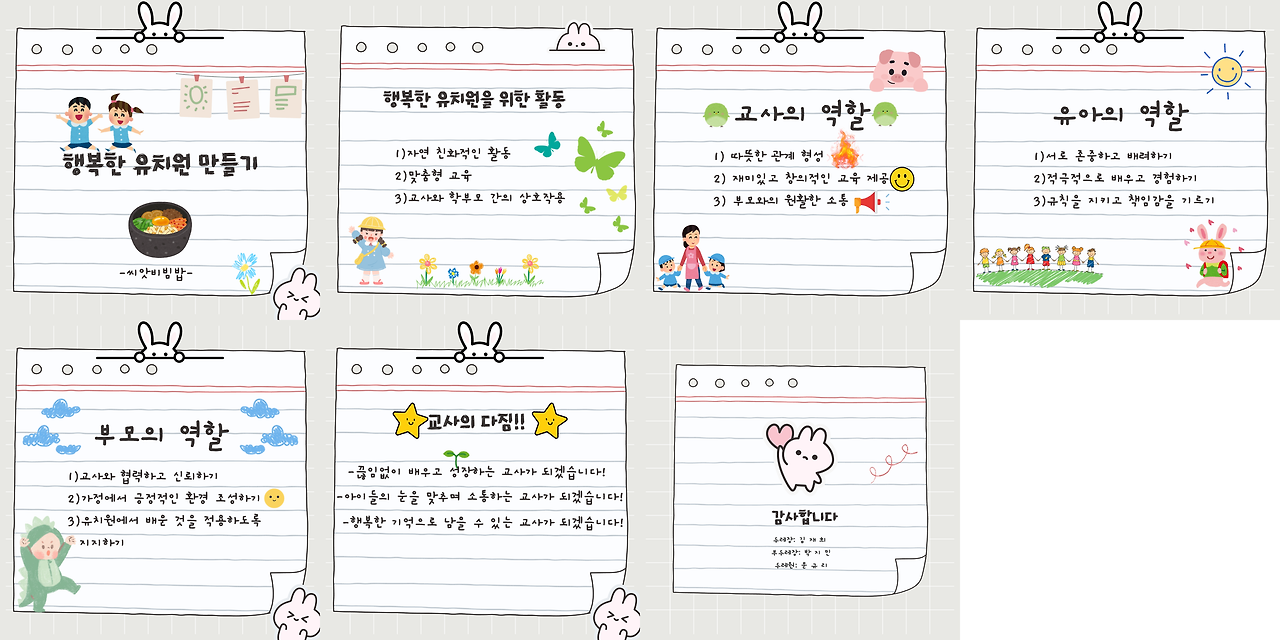 행복한 유치원 만들기
-씨앗비빔밥-
행복한 유치원을 위한 활동
1)자연 친화적인 활동
2)맞춤형 교육
3)교사와 학부모 간의 상호작용
교사의 역할
1) 따뜻한 관계 형성
2) 재미있고 창의적인 교육 제공
3) 부모와의 원활한 소통
유아의 역할
1)서로 존중하고 배려하기
2)적극적으로 배우고 경험하기
3)규칙을 지키고 책임감을 기르기
부모의 역할
1)교사와 협력하고 신뢰하기
2)가정에서 긍정적인 환경 조성하기
3)유치원에서 배운 것을 적용하도록
지지하기
교사의 다짐!!
-끊임없이 배우고 성장하는 교사가 되겠습니다!
-아이들의 눈을 맞추며 소통하는 교사가 되겠습니다!
-행복한 기억으로 남을 수 있는 교사가 되겠습니다!
감사합니다